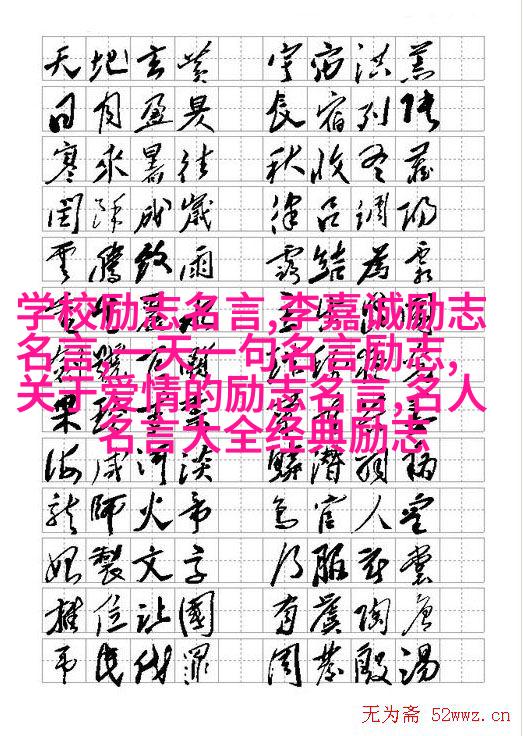 天地玄黄 宇宙洪荒
日月盈昃 辰宿列張
寒來暑往 秋收冬藏
閏餘成歲 律呂調陽
雲騰致雨 露結為霜
学校励志名言,李嘉诚励志
名言,一天一句名言励志,
关于爱情的励志名言,名人
名言大全经典励志
海咸河淡 鱗潛羽翔
龍師火帝 鳥官人皇
始製文字 乃服衣裳
推位讓國 有虞陶唐
弔民伐罪 周發殷湯
无为斋 52wwz.cn